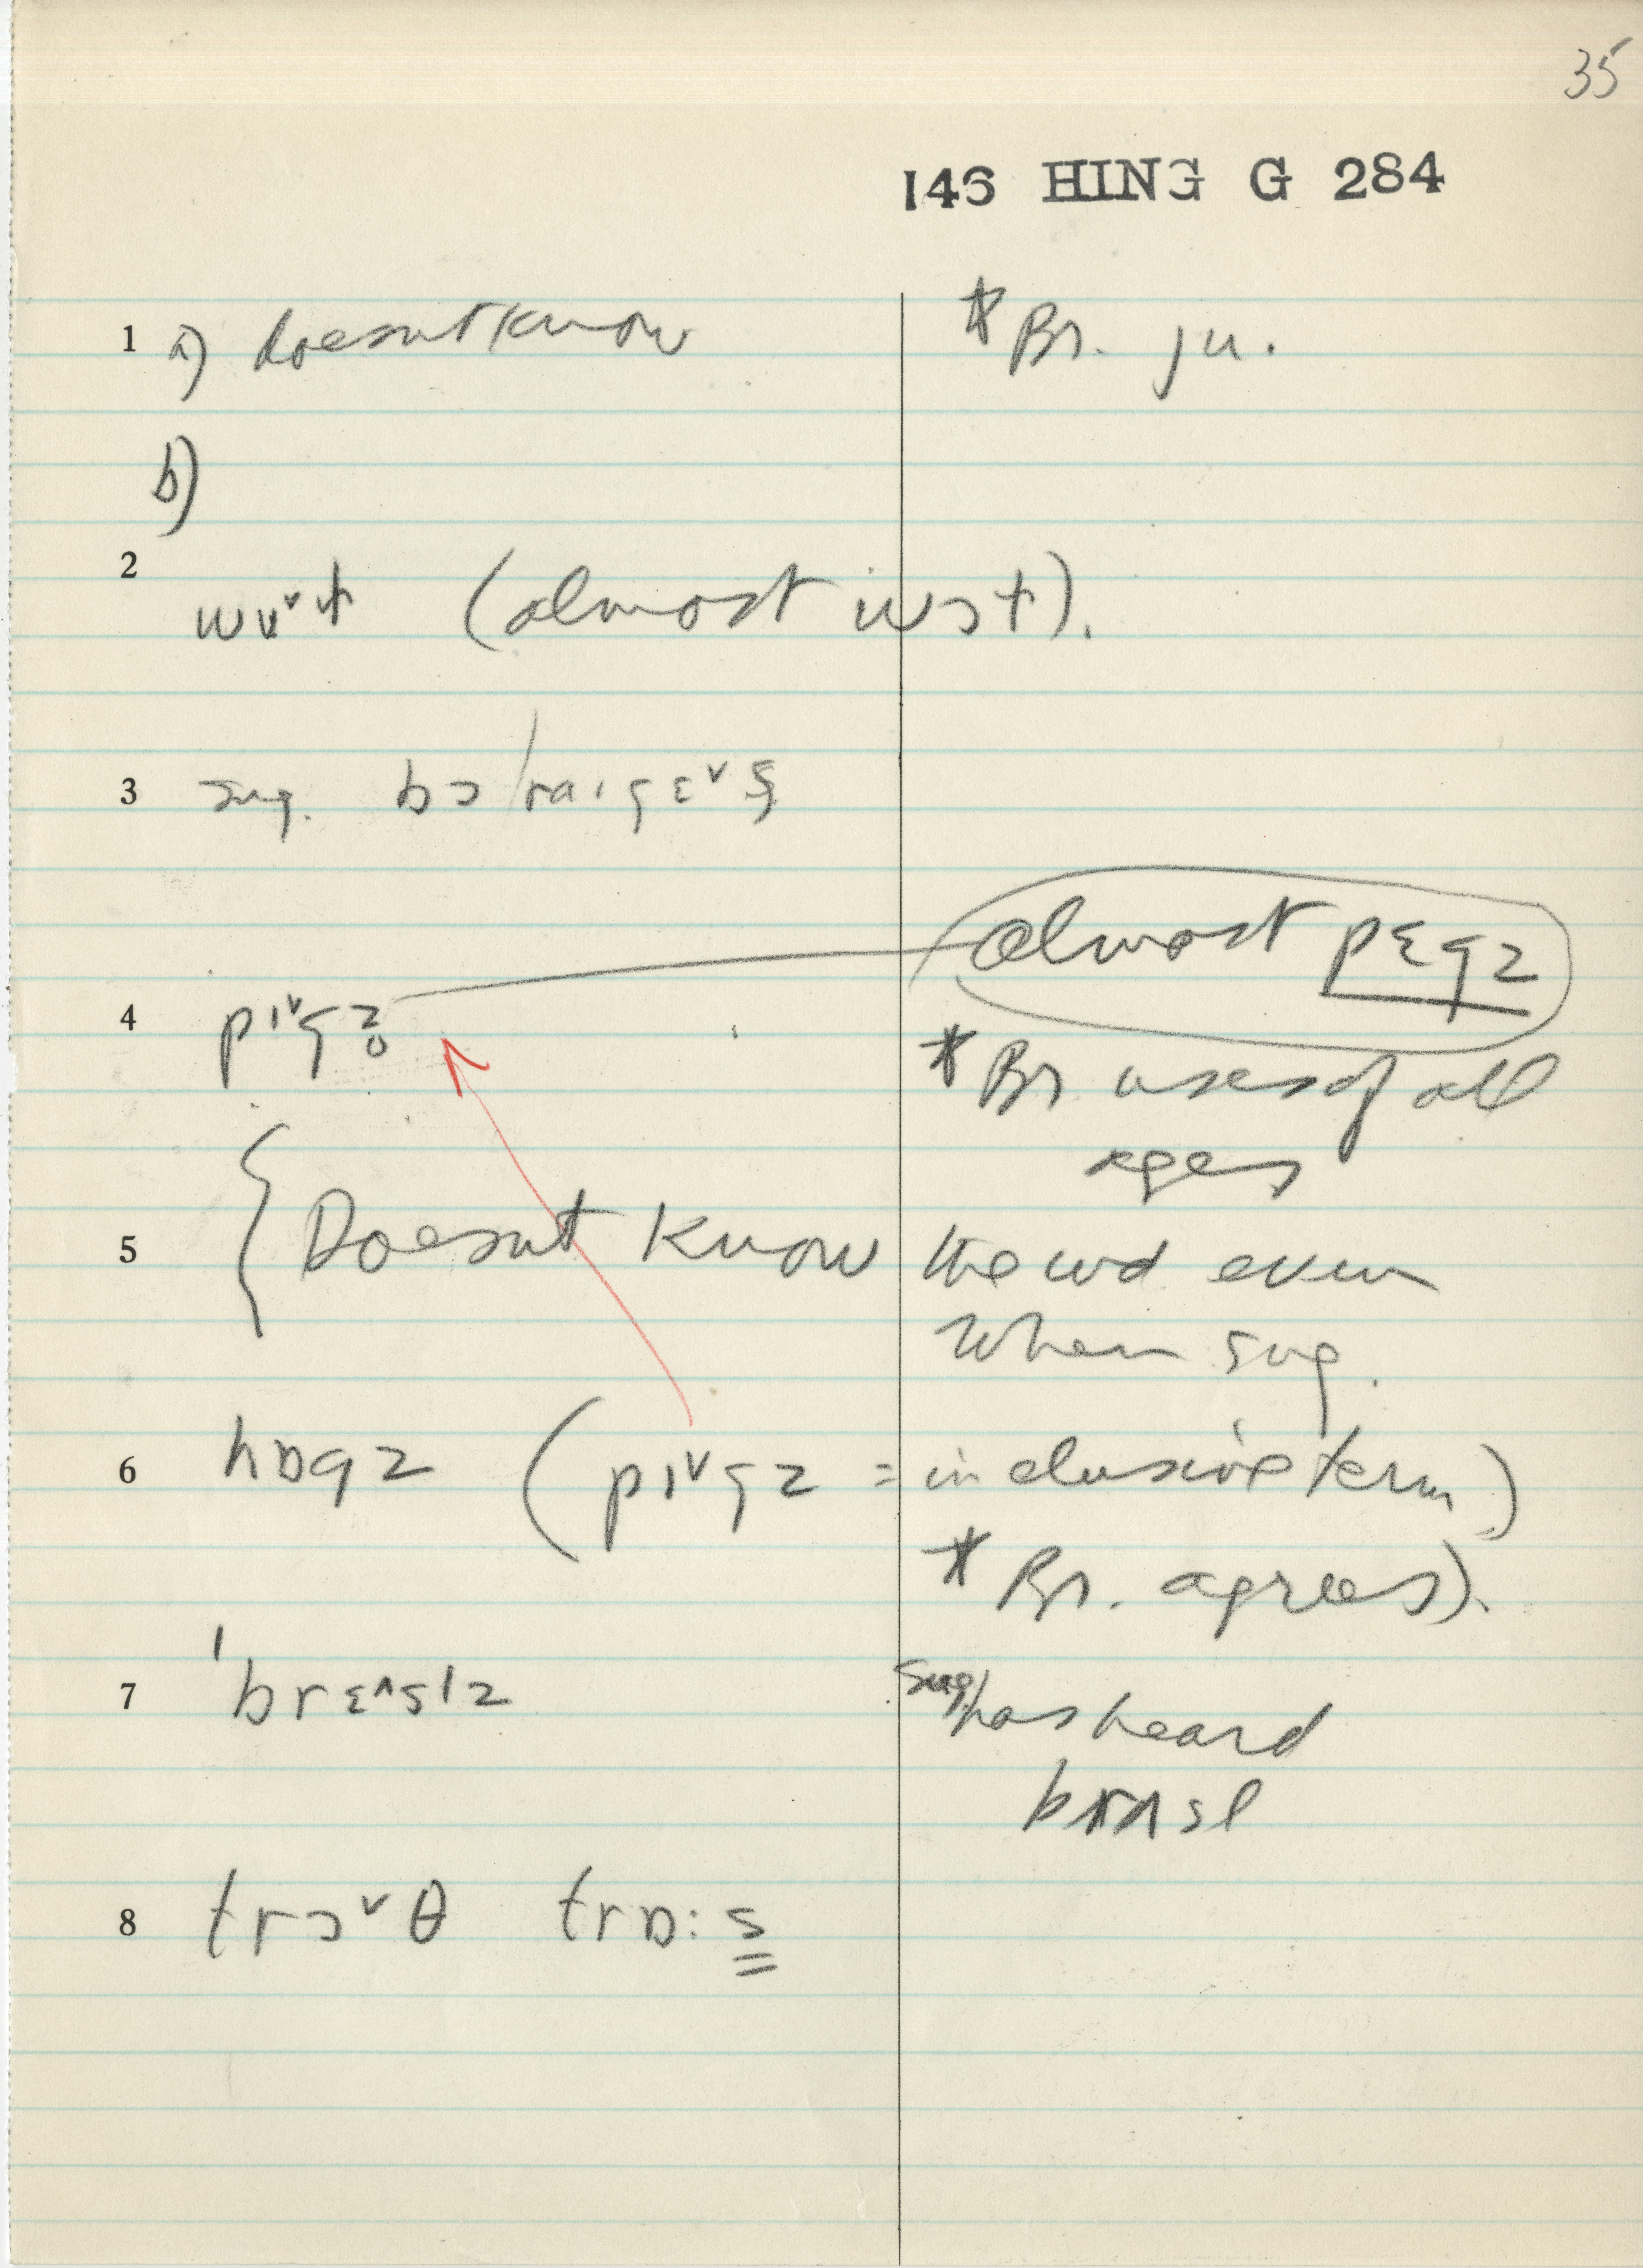 35
146 HING G 284
1 a) doesnt know * Br. ju.
b)
2
wʊ˅t (almost wɔt).
3 sug.
almost pɛgz
4 pɪ˅gz̥
* Br uses of all
ages
5 { Doesnt know the wd even
when sug.
6 hɒgz (pɪ˅gz = inclusive term)
* Br. agrees).
7 ˈbrɛ˄slz sug. has heard
brʌsl
8 trɔ˅θ trɒ:s